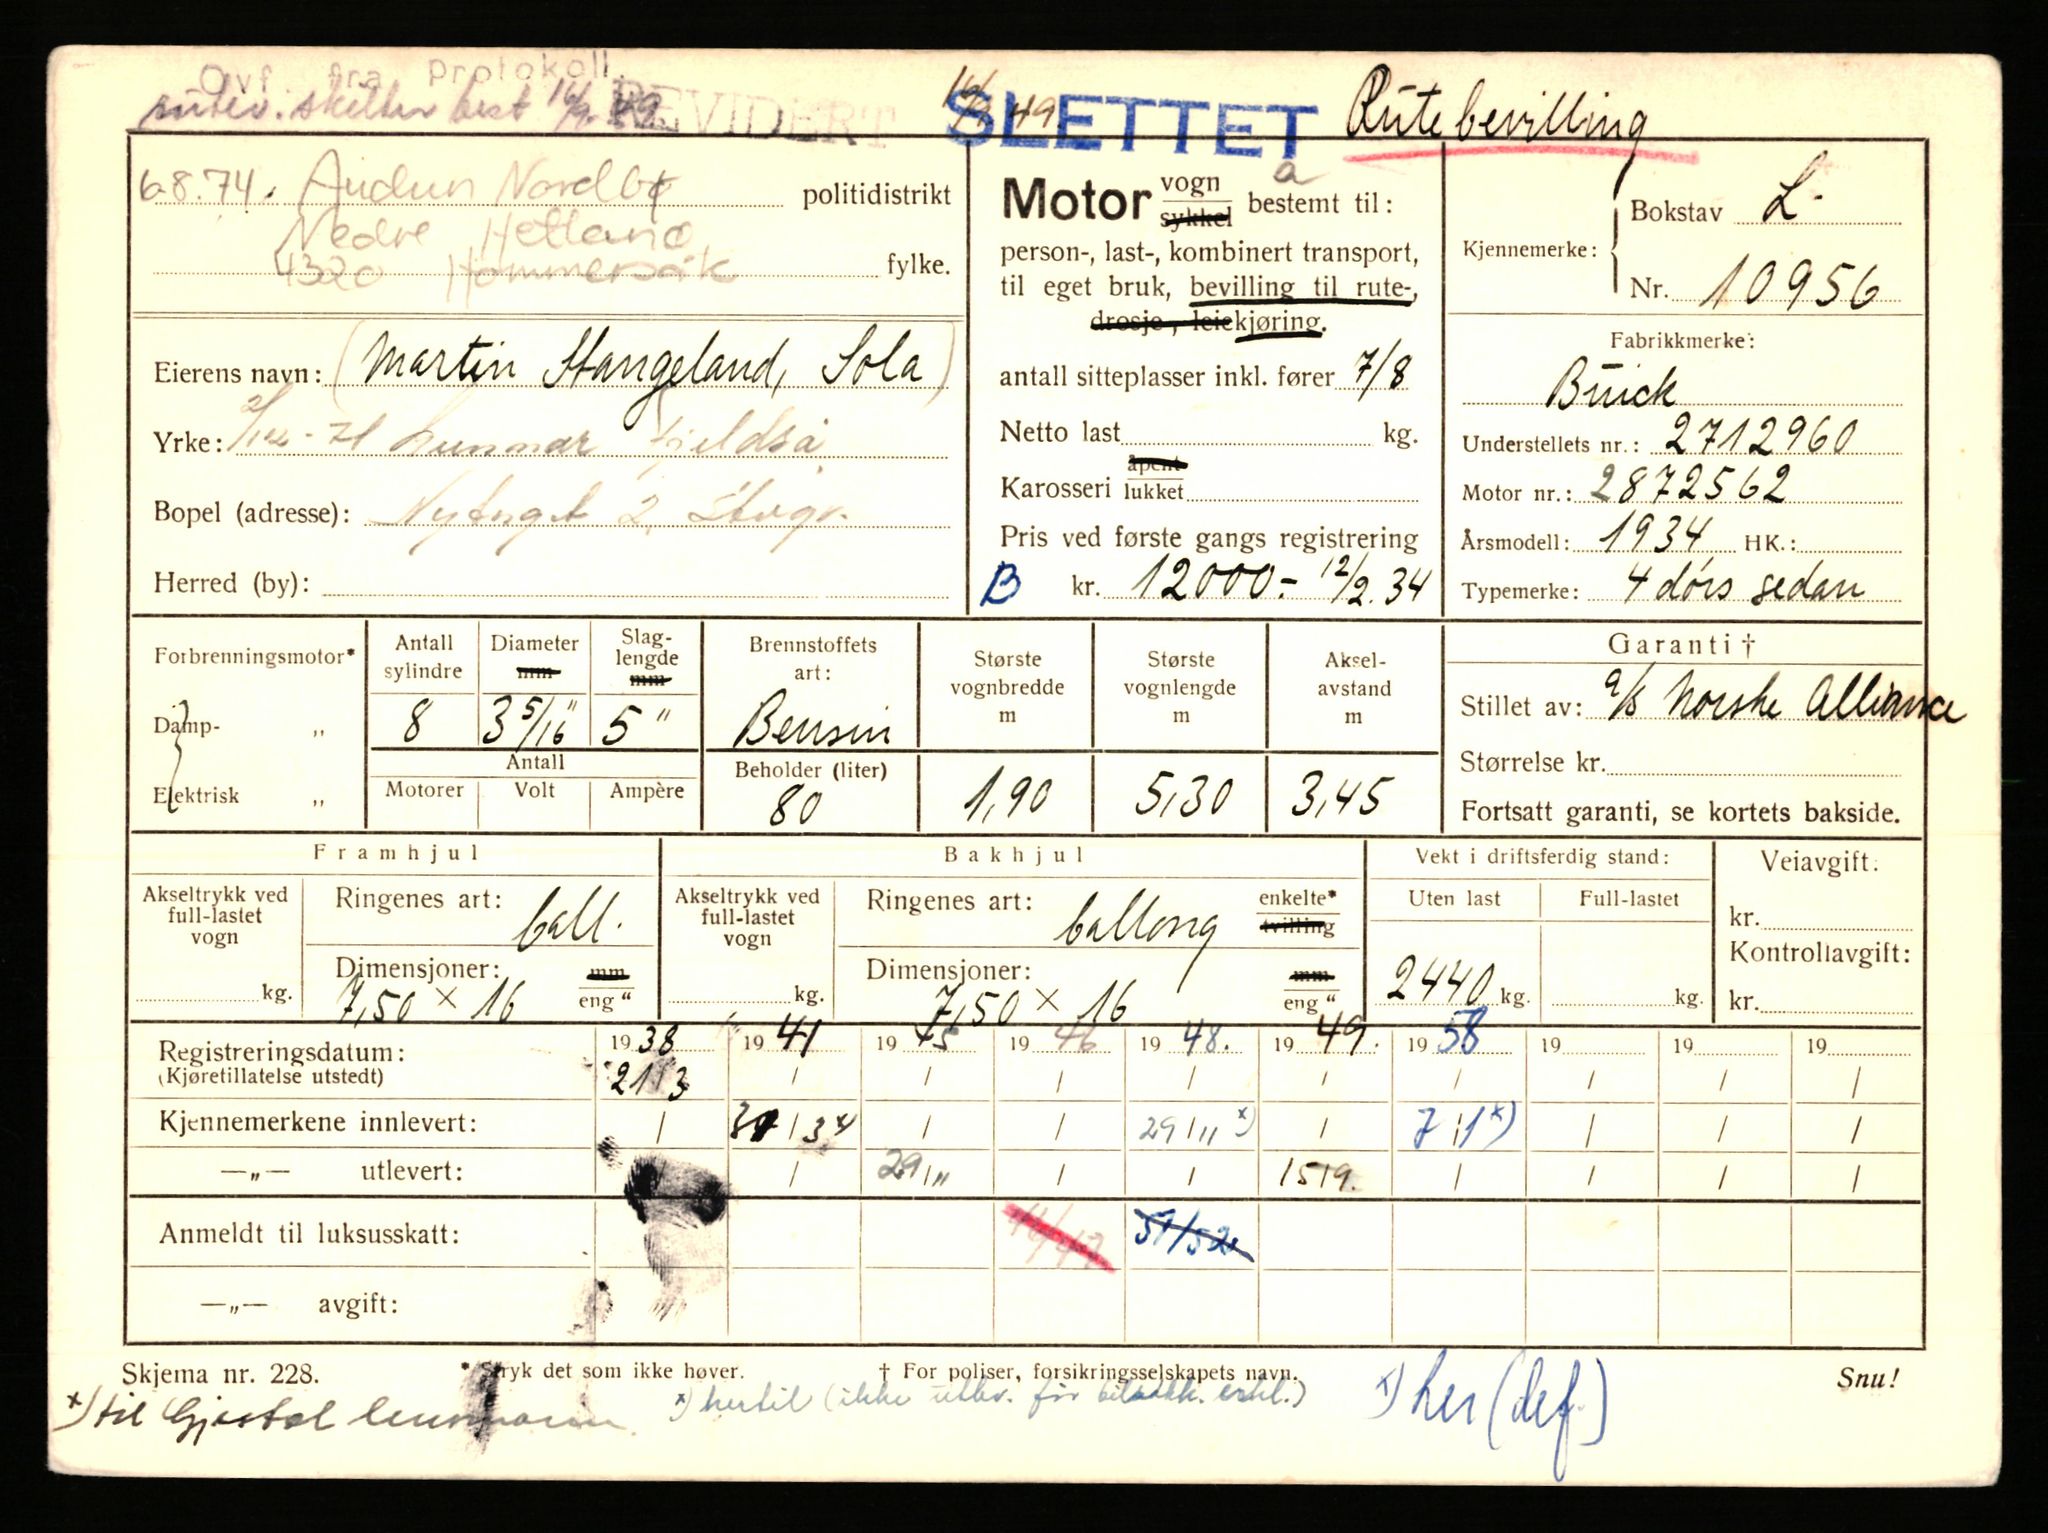 Ovf. fra protokoll.
rutev. skilter best 16/9 49 REVIDERT 16/9 49. SLETTET Rutebevilling
6.8.74. Audun Nordbø politidistrikt
Nedre Hetland
4320 Hommersåk fylke.
Eierens navn: (Martin Stangeland, Sola)
Yrke: 2/12-71 Gunnar Fjeldså
Bopel (adresse): Nytorget 2, Stvgr.
Herred (by):
Motor vogn sykkel bestemt til: a
person-, last-, kombinert transport,
til eget bruk, bevilling til rute-,
drosje-, leiekjøring.
antall sitteplasser inkl. fører 7/8
Netto last kg.
Karosseri åpent lukket
Pris ved første gangs registrering
B kr. 12000.- 12/2.34
Kjennemerke: Bokstav L-
Nr. 10956
Fabrikkmerke:
Buick
Understellets nr.: 2712960
Motor nr.: 2872562
Årsmodell: 1934 HK.:
Typemerke: 4 dørs sedan
Forbrenningsmotor*
Damp- „
Elektrisk „
Antall sylindre 8
Diameter mm 3 5/16"
Slaglengde mm 5"
Antall
Motorer Volt Ampère
Brennstoffets art: Bensin
Beholder (liter) 80
Største vognbredde m 1,90
Største vognlengde m 5,30
Aksel-avstand m 3,45
Garanti †
Stillet av: A/S Norske Alliance
Størrelse kr.
Fortsatt garanti, se kortets bakside.
Framhjul
Akseltrykk ved full-lastet vogn kg.
Ringenes art: ball.
Dimensjoner: mm eng " 7,50 × 16
Bakhjul
Akseltrykk ved full-lastet vogn kg.
Ringenes art: ballong enkelte* tvilling
Dimensjoner: mm eng " 7,50 × 16
Vekt i driftsferdig stand:
Uten last 2440 kg.
Full-lastet kg.
Veiavgift:
kr.
Kontrollavgift:
kr.
Registreringsdatum: 1938 1941 1945 1946 1948. 1949. 1958 19 19 19
(Kjøretillatelse utstedt) 21/3 / / / / / / / / /
Kjennemerkene innlevert: / 31/3 x) / / 29/11 x) / 7/1 x) / / /
—„— utlevert: / / 29/11 / / 15/9. / / / /
Anmeldt til luksusskatt: 46/47 51/52
—„— avgift:
Skjema nr. 228. * Stryk det som ikke høver. † For poliser, forsikringsselskapets navn. Snu!
x) til Gjestal lensmann x) hertil (ikke utlev. før bilsakk. erkl.) x) her (def.)